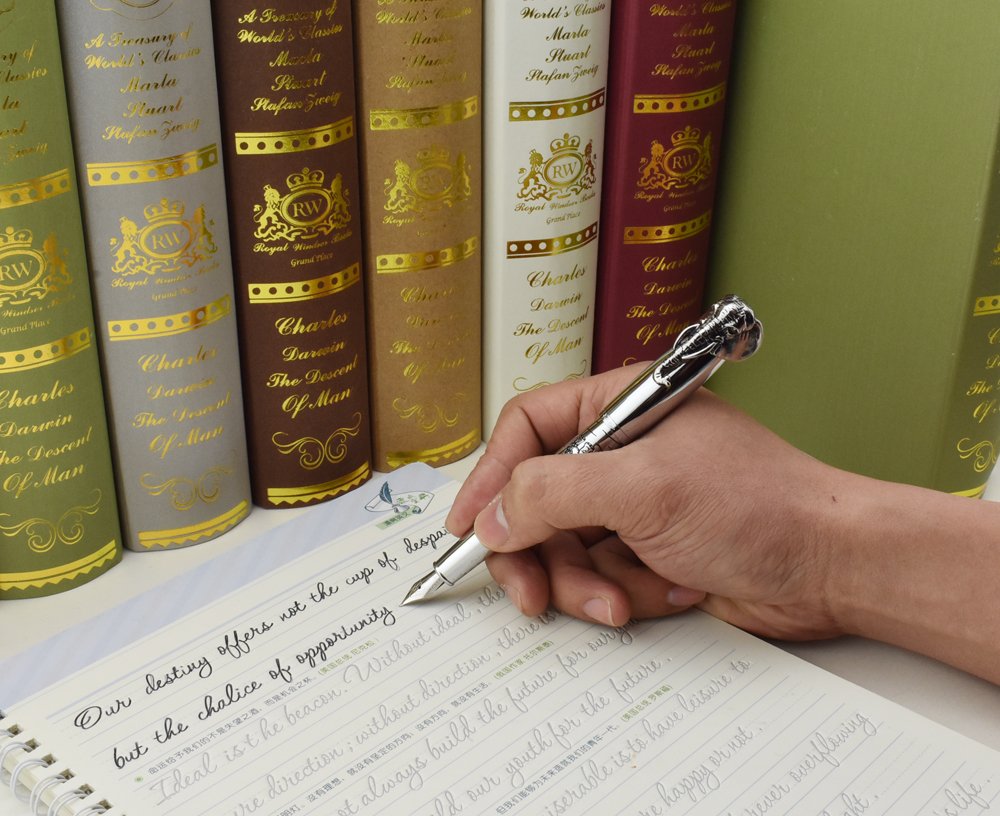 of
Classics
Zweig
RW
Grand Place
Charles
Darwin
The Descent
Of Man
A Treasury of
World's Classics
Marla
Stuart
Stafan Zweig
RW
Royal Windsor Books
Grand Place
Charles
Darwin
The Descent
Of Man
A Treasury of
World's Classics
Marla
Stuart
Stafan Zweig
RW
Royal Windsor Books
Grand Place
Charles
Darwin
The Descent
Of Man
World's Classics
Marla
Stuart
Stafan Zweig
RW
Royal Windsor Books
Charles
Darwin
The Descent
Of Man
World's Classics
Marla
Stuart
Stafan Zweig
RW
Royal Windsor Books
Grand Place
Charles
Darwin
The Descent
Of Man
World's Classics
Marla
Stuart
Stafan Zweig
RW
Royal Windsor Books
Grand Place
Charles
Darwin
The Descent
Of Man
Our destiny offers not the cup of despa
but the chalice of opportunity
命运给予我们的不是失望之酒，而是机会之杯。(美国总统 尼克松)
Ideal is the beacon. Without ideal, the
ure direction; without direction, there is
没有理想，就没有坚定的方向，没有方向，就没有生活。(俄国作家 托尔斯泰)
not always build the future for our
ld our youth for the future.
但我们能够为未来造就我们的青年一代。(美国总统 罗斯福)
iserable is to have leisure to
re happy or not.
rever overflowing
life